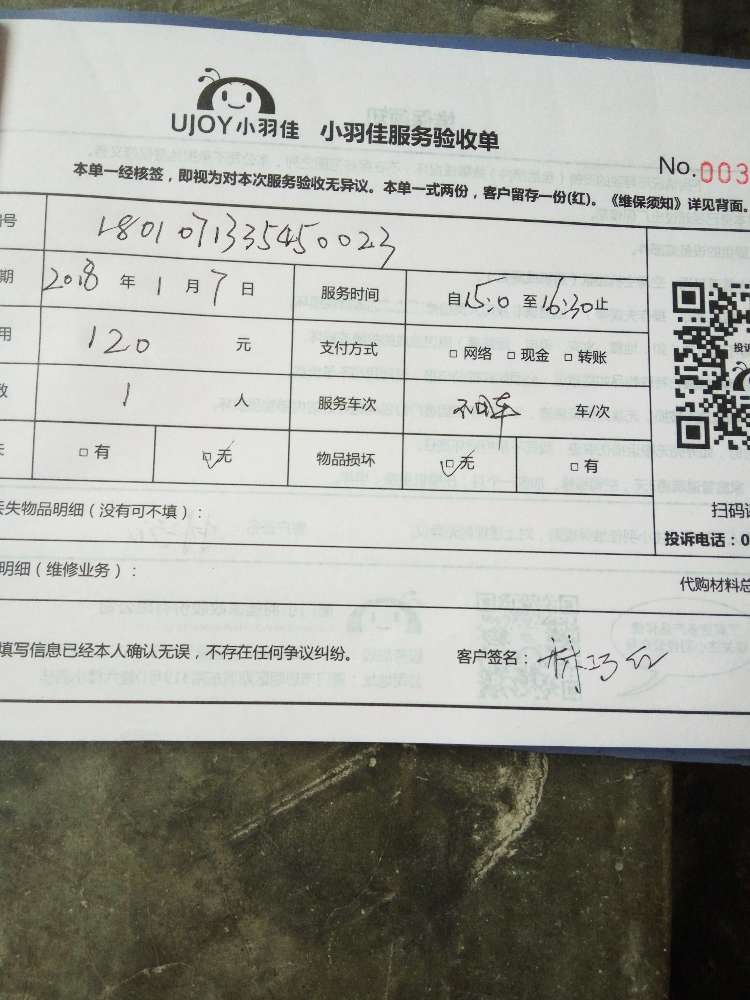 UJOY小羽佳 小羽佳服务验收单
No.003
本单一经核签，即视为对本次服务验收无异议。本单一式两份，客户留存一份(红)。《维保须知》详见背面。
号 1801071335450023
期 2018 年 1 月 7 日 服务时间 自15:0 至16:30止
用 120 元 支付方式 □ 网络 □ 现金 □ 转账
数 1 人 服务车次 不用车 车/次
□ 有 □ 无 物品损坏 □ 无 □ 有
失物品明细（没有可不填）： 扫码
投诉电话：0
明细（维修业务）： 代购材料总
填写信息已经本人确认无误，不存在任何争议纠纷。 客户签名：林巧红